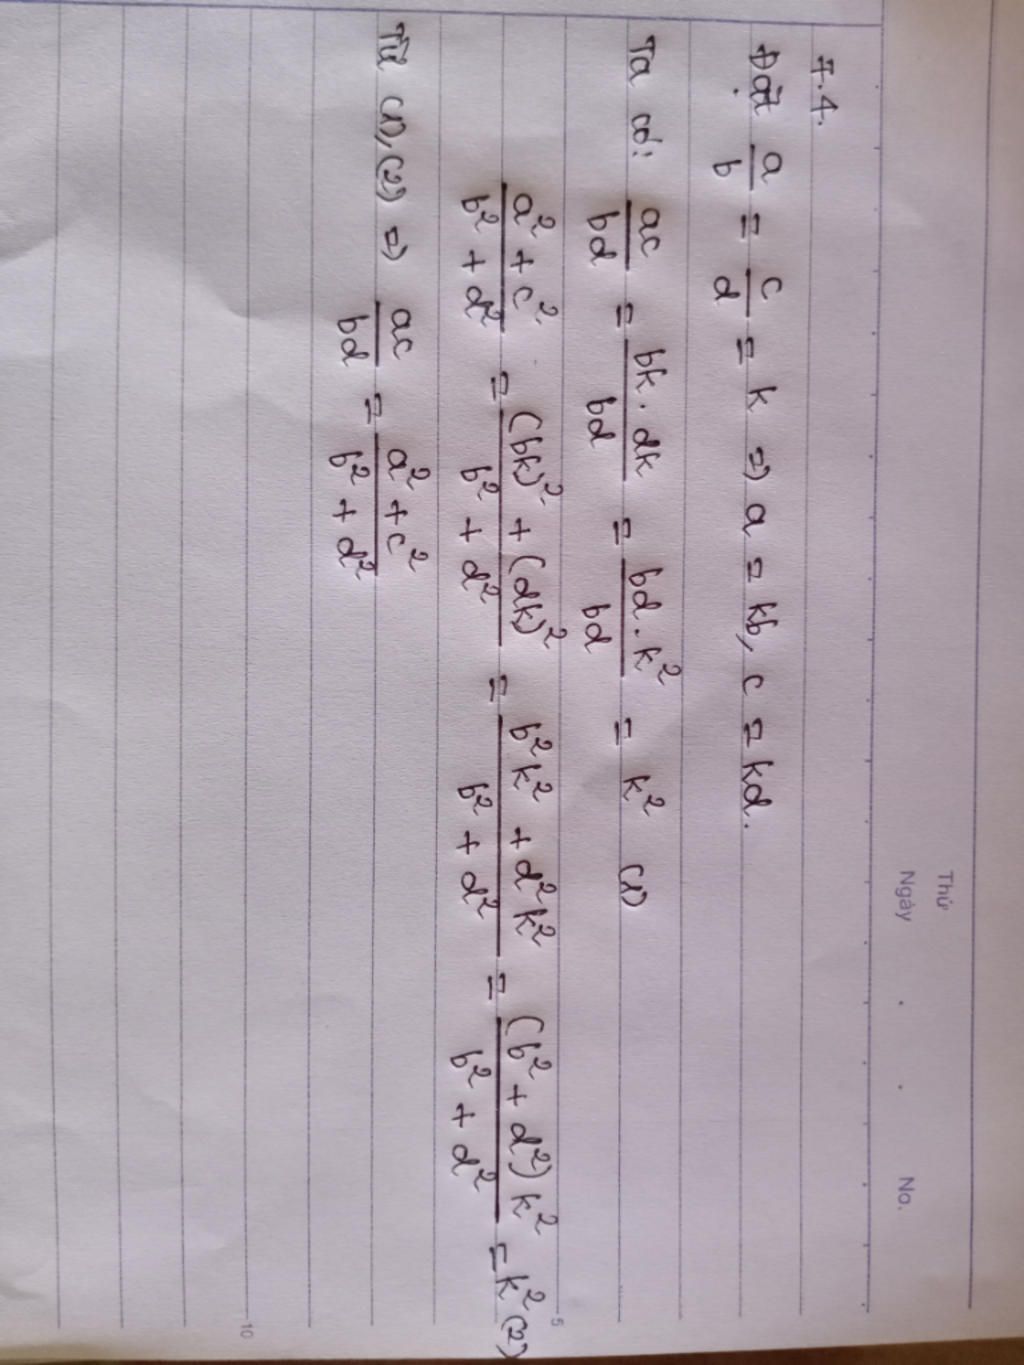 Thứ
Ngày . . No.
7.4.
Đặt a/b = c/d = k => a = kb, c = kd.
Ta có: ac/bd = bk . dk/bd = bd . k²/bd = k² (1)
a² + c²/b² + d² = (bk)² + (dk)²/b² + d² = b²k² + d²k²/b² + d² = (b² + d²) k²/b² + d² = k² (2)
5
Từ (1), (2) => ac/bd = a² + c²/b² + d²
10